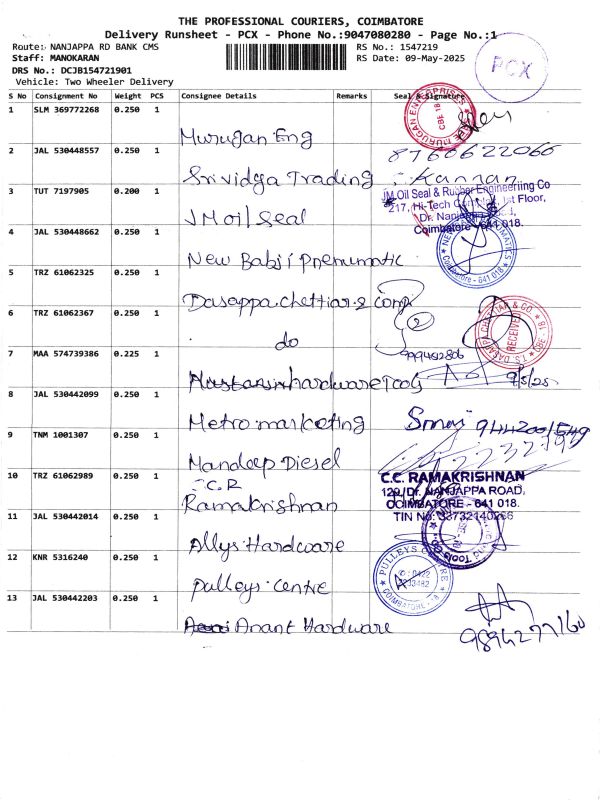 THE PROFESSIONAL COURIERS, COIMBATORE
Delivery Runsheet - PCX - Phone No.:9047080280 - Page No.:1
Route: NANJAPPA RD BANK CMS
RS No.: 1547219
Staff: MANOKARAN
RS Date: 09-May-2025
DRS No.: DCJB154721901
Vehicle: Two Wheeler Delivery
PCX
S No Consignment No Weight PCS Consignee Details Remarks Seal & Signature
1 SLM 369772268 0.250 1 Murugan Eng
2 JAL 530448557 0.250 1 Srividya Trading
8760622066
Kannan
3 TUT 7197905 0.200 1 JM oil seal
JM Oil Seal & Rubber Engineering Co
217, Hi-Tech
Floor,
Dr.
Coimbatore - 641 018.
4 JAL 530448662 0.250 1 New Babji Pneumatic
Coimbatore - 641 018
5 TRZ 61062325 0.250 1 Dasappa Chettiar & Comp
6 TRZ 61062367 0.250 1 do
2
RECEIVED
7 MAA 574739386 0.225 1 hardware Tools
9/5/25
8 JAL 530442099 0.250 1 Metro marketing
9442001549
9 TNM 1001307 0.250 1 Mandeep Diesel
10 TRZ 61062989 0.250 1 C.R Ramakrishnan
C.C. RAMAKRISHNAN
129, Dr. NANJAPPA ROAD,
COIMBATORE - 641 018.
TIN No: 33732140266
11 JAL 530442014 0.250 1 Allys Hardware
12 KNR 5316240 0.250 1 Pulleys centre
PULLEYS CENTRE
COIMBATORE - 18
13 JAL 530442203 0.250 1 Anant Hardware
9894277160